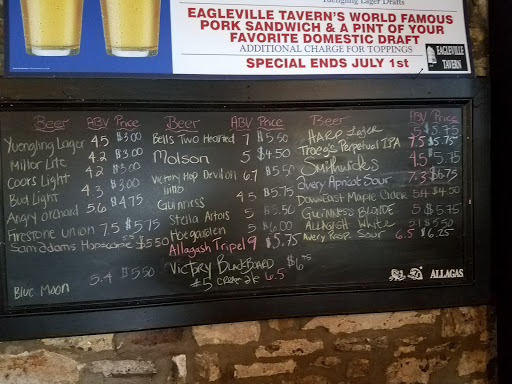 Yuengling Lager Drafts
EAGLEVILLE TAVERN'S WORLD FAMOUS
PORK SANDWICH & A PINT OF YOUR
FAVORITE DOMESTIC DRAFT
ADDITIONAL CHARGE FOR TOPPINGS
SPECIAL ENDS JULY 1st
EAGLEVILLE
TAVERN
Beer ABV Price
Yuengling Lager 4.5 $3.00
Miller Lite 4.2 $3.00
Coors Light 4.2 $3.00
Bud Light 4.3 $3.00
Angry Orchard 5.6 $4.75
Firestone Union 7.5 $5.75
Sam Adams 5.50
Blue Moon 5.4 $5.50
Beer ABV Price
Bells Two Hearted 7 $5.50
Molson 5 $4.50
Victory Hop Devil 6.7 $5.50
Guinness 4.5 $5.75
Stella Artois 5
Hoegaarden 5 $6.00
Allagash Tripel 9 $5.75
Victory Blackboard $6.75
#5 6.5
Beer ABV Price
Harp Lager 5 $5.75
Troegs Perpetual IPA 7.5 $5.75
Smithwicks 4.5 $5.75
Avery Apricot Sour 7.3 $6.75
DownEast Maple Cider $4.50
Guinness Blonde 5 $5.75
Allagash White 5.1 $5.50
Avery Sour 6.5 $6.25
ALLAGAS